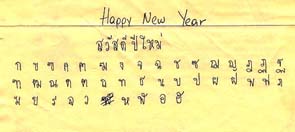 Happy New Year
สวัสดีปีใหม่
ก ข ฃ ค ฅ ฆ ง จ ฉ ช ซ ฌ ญ ฎ ฏ ฐ
ฑ ฒ ณ ด ต ถ ท ธ น บ ป ผ ฝ พ ฟ ภ
ม ย ร ล ว ห ฬ อ ฮ